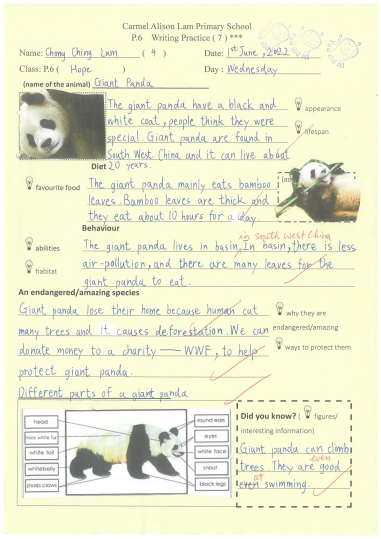 Carmel Alison Lam Primary School
P.6 Writing Practice ( 7 ) ***
Name: Chong Ching Lam ( 4 ) Date: 1st June, 2022
Class: P.6 ( Hope ) Day : Wednesday
(name of the animal) Giant Panda
The giant panda have a black and
white coat, people think they were
special. Giant panda are found in
South West China and it can live about
20 years.
appearance
lifespan
Diet
favourite food
The giant panda mainly eats bamboo
leaves. Bamboo leaves are thick and
they eat about 10 hours for a day.
Behaviour
in south west China
abilities
habitat
The giant panda lives in basin. In basin, there is less
air-pollution, and there are many leaves for the
giant panda to eat.
An endangered/amazing species
Giant panda lose their home because human cut
many trees and it causes deforestation. We can
donate money to a charity — WWF, to help
protect giant panda.
why they are
endangered/amazing
ways to protect them
Different parts of a giant panda
head
thick white fur
white tail
white belly
sharp claws
round ears
eyes
white face
snout
black legs
Did you know? ( figures/
interesting information)
Giant panda can climb
even
trees. They are good
at
even swimming.